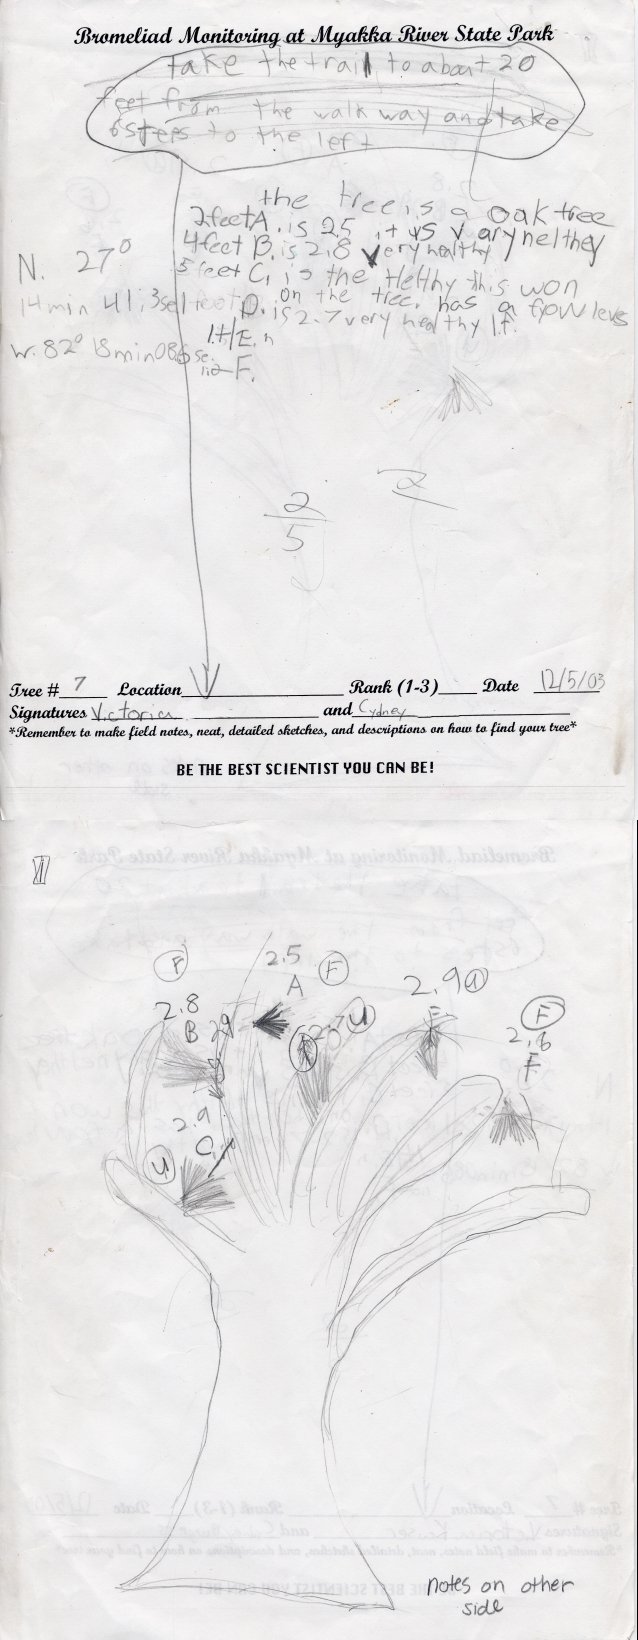 Bromeliad Monitoring at Myakka River State Park
take the trail to about 20
feet from the walk way and take
6 steps to the left
the tree is a oak tree
2 feet A. is 2.5 it is vary nelthey
4 feet B. is 2.8 very healthy
N. 27°
5 feet C. is the Helthy this won
on the tree. has a fow levs
14 min 41.3 sec
D. is 2.7 very healthy
E.
W. 82° 18 min 08.6 se.
F.
2
5
2
Tree # 7 Location Rank (1-3) Date 12/5/03
Signatures Victoria and Cydney
*Remember to make field notes, neat, detailed sketches, and descriptions on how to find your tree*
BE THE BEST SCIENTIST YOU CAN BE!
F 2.5 F 2.9
A
2.8 U F
B 2.8
E F
2.9
U
notes on other
side